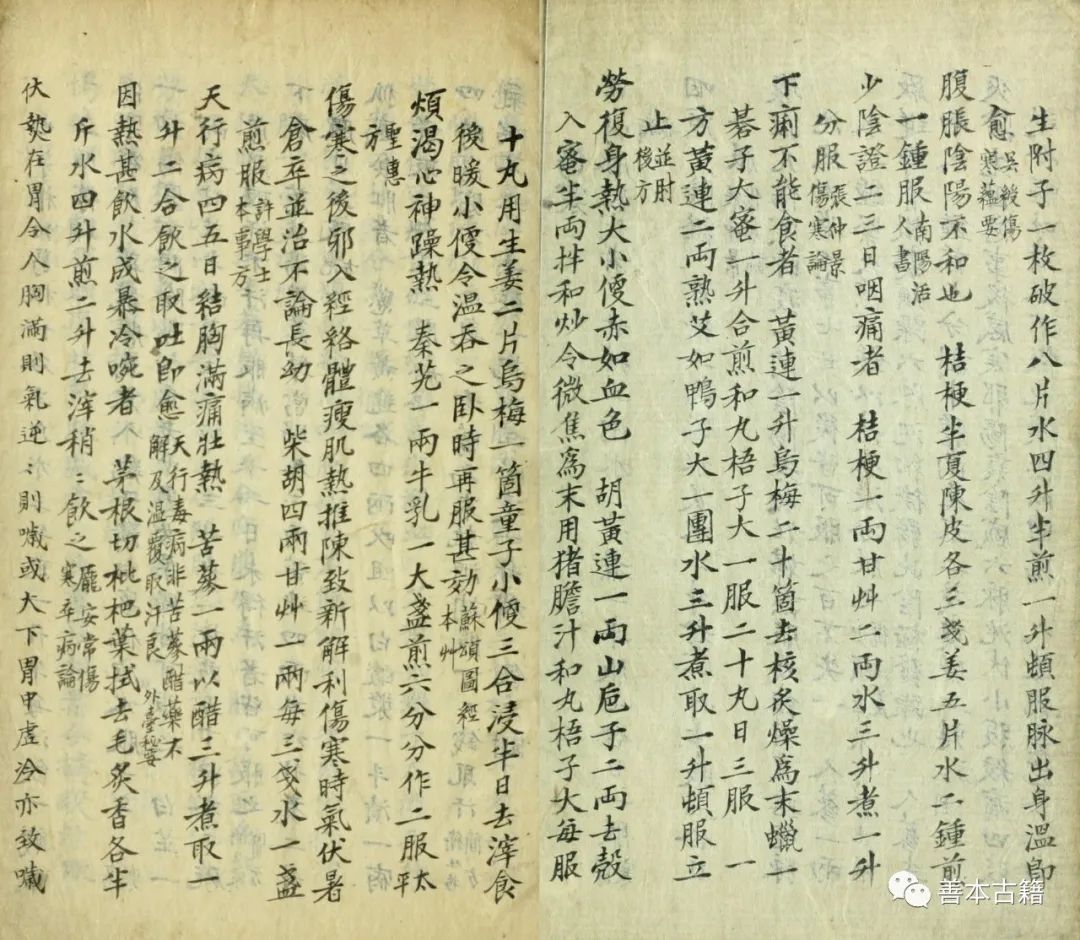 生附子一枚破作八片水四升半煎一升頓服脉出身溫即
愈吳綬傷寒蘊要
腹脹陰陽不和也　桔梗半夏陳皮各三戔姜五片水二鍾煎
一鍾服南陽活人書
少陰證二三日咽痛者　桔梗一両甘艸二両水三升煮一升
分服張仲景傷寒論
下痢不能食者　黃連一升烏梅二十箇去核炙燥為末蠟一
碁子大蜜一升合煎和丸梧子大一服二十丸日三服　一
方黃連二両熟艾如鴨子大一團水三升煮取一升頓服立
止並肘後方
勞復身熱大小便赤如血色　胡黃連一両山卮子二両去殼
入蜜半両拌和炒令微焦為末用猪膽汁和丸梧子大每服
十丸用生姜二片烏梅一箇童子小便三合浸半日去滓食
後暖小便令溫吞之卧時再服甚効蘇頌圖經本艸
煩渴心神躁熱　秦艽一兩牛乳一大盞煎六分分作二服太平
聖惠方
傷寒之後邪入經絡體瘦肌熱推陳致新解利傷寒時氣伏暑
倉卒並治不論長幼　柴胡四兩甘艸一兩每三戔水一盞
煎服許學士本事方
天行病四五日結胸滿痛壯熱　苦蔘一兩以醋三升煮取一
升二合飲之取吐即愈天行毒病非苦蔘醋藥不解及溫覆取汗良外臺秘要
因熱甚飲水成暴冷啘者　茅根切枇杷葉拭去毛炙香各半
斤水四升煎二升去滓稍〻飲之龐安常傷寒卒病論
伏熱在胃令人胸滿則氣逆〻則噦或大下胃中虛冷亦致噦
善本古籍